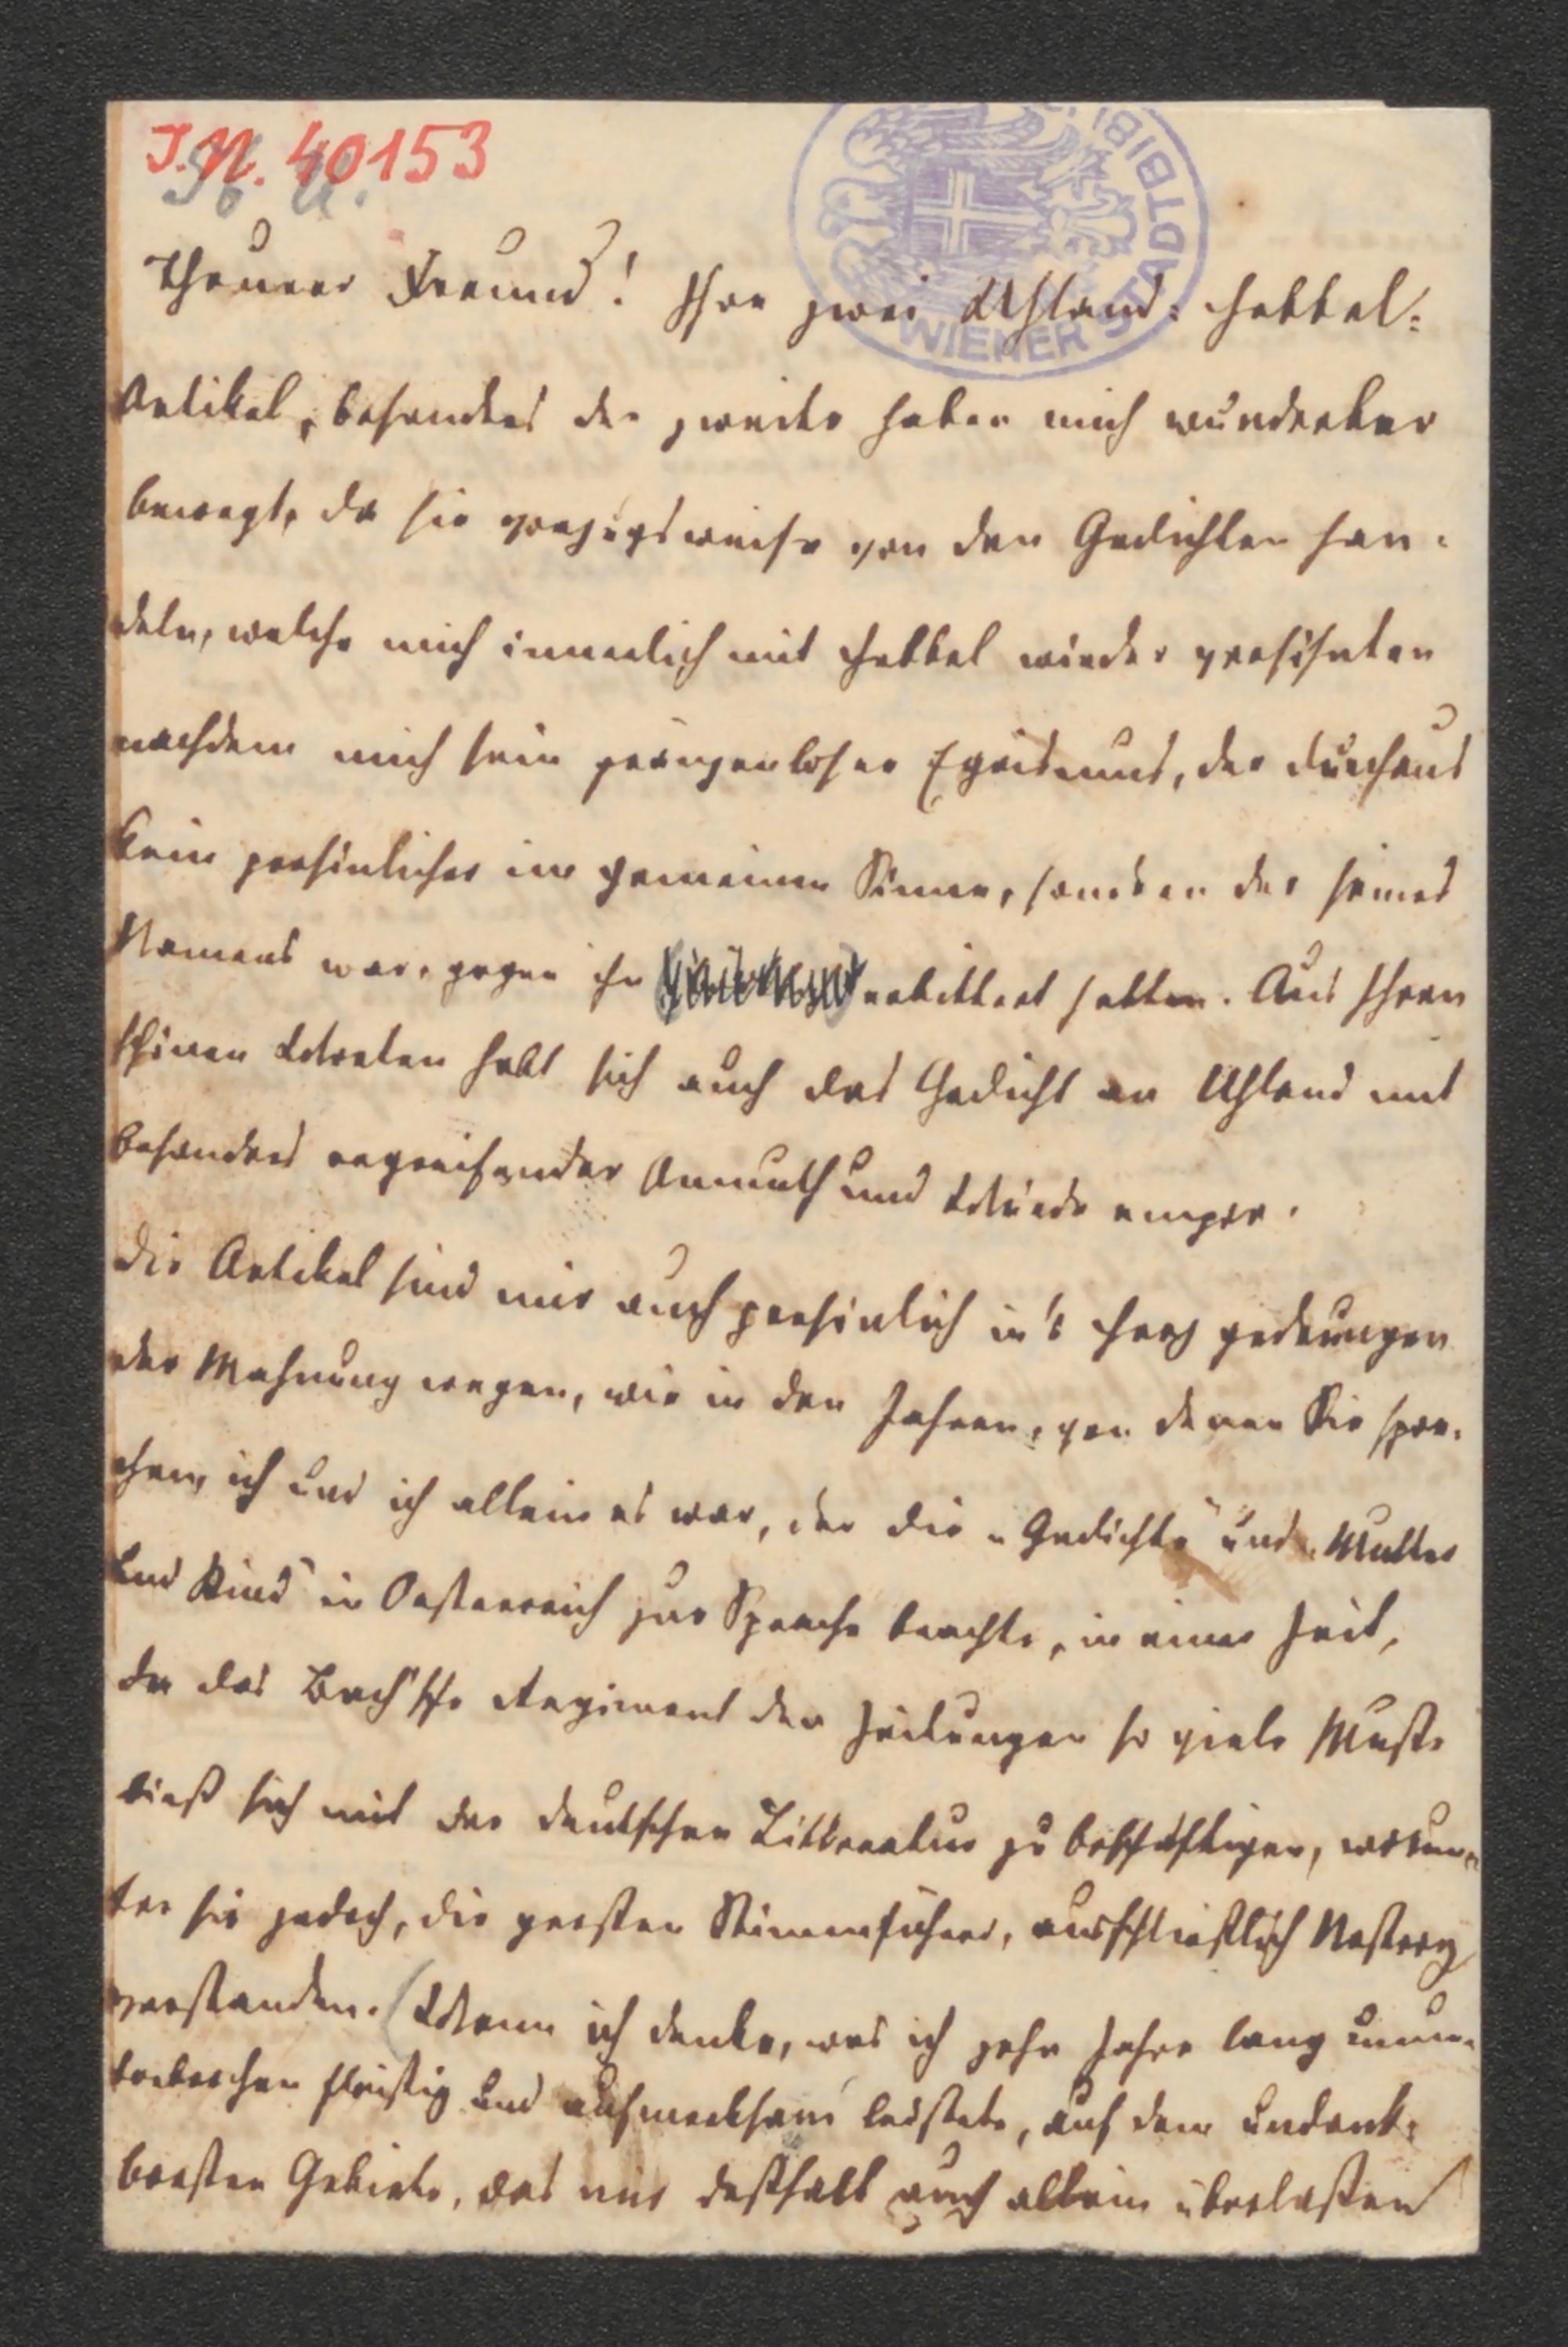 J.N. 40153
WIENER STADTBIBL
Theurer Freund! Ihre zwei Uhland-Hebbel-
Artikel, besonders der zweite haben mich wunderbar
bewegt, da sie vorzugsweise von den Gedichten han-
deln, welche mich innerlich mit Hebbel wieder versöhnten
nachdem mich sein grenzenloser Egoismus, der durchaus
kein persönlicher im gemeinen Sinne, sondern der seines
Namens war, gegen ihn erbittert hatten. Aus Ihren
schönen Worten hebt sich auch das Gedicht an Uhland mit
besonders ergreifender Anmuth und Würde empor.
Die Artikel sind mir auch persönlich in's Herz gedrungen
der Mahnung wegen, wie in den Jahren, von denen Sie spre-
chen, ich und ich allein es war, der die "Gedichte" und "Mutter
und Kind" in Oesterreich zur Sprache brachte, in einer Zeit,
da das Bach'sche Regiment den Zeitungen so viele Muße
ließ sich mit der deutschen Litteratur zu beschäftigen, worun-
ter sie jedoch, die großen Stimmführer, ausschließlich Nestroy
verstanden. (Wenn ich denke, was ich zehn Jahre lang unun-
terbrochen fleißig und aufmerksam leistete, auf dem undank-
barsten Gebiete, das mir deßhalb auch allein überlassen